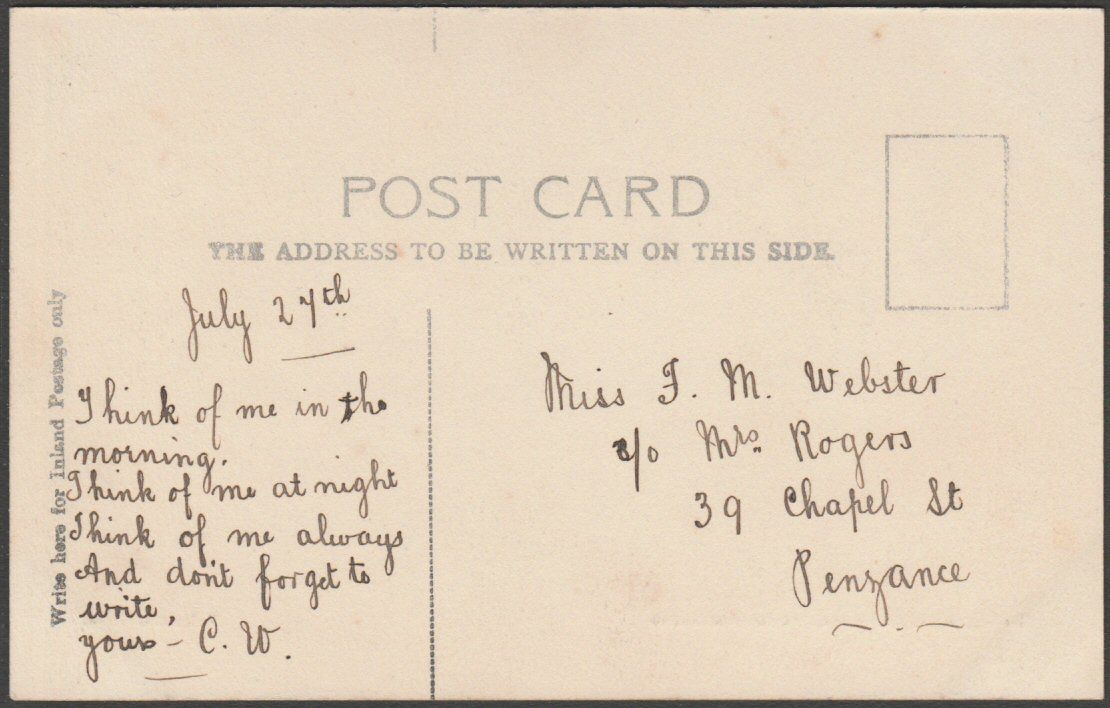 POST CARD
THE ADDRESS TO BE WRITTEN ON THIS SIDE.
Write here for Inland Postage only
July 27th
Think of me in the
morning.
Think of me at night
Think of me always
And don't forget to
write,
yours – C. W.
Miss F. M. Webster
c/o Mrs. Rogers
39 Chapel St
Penzance